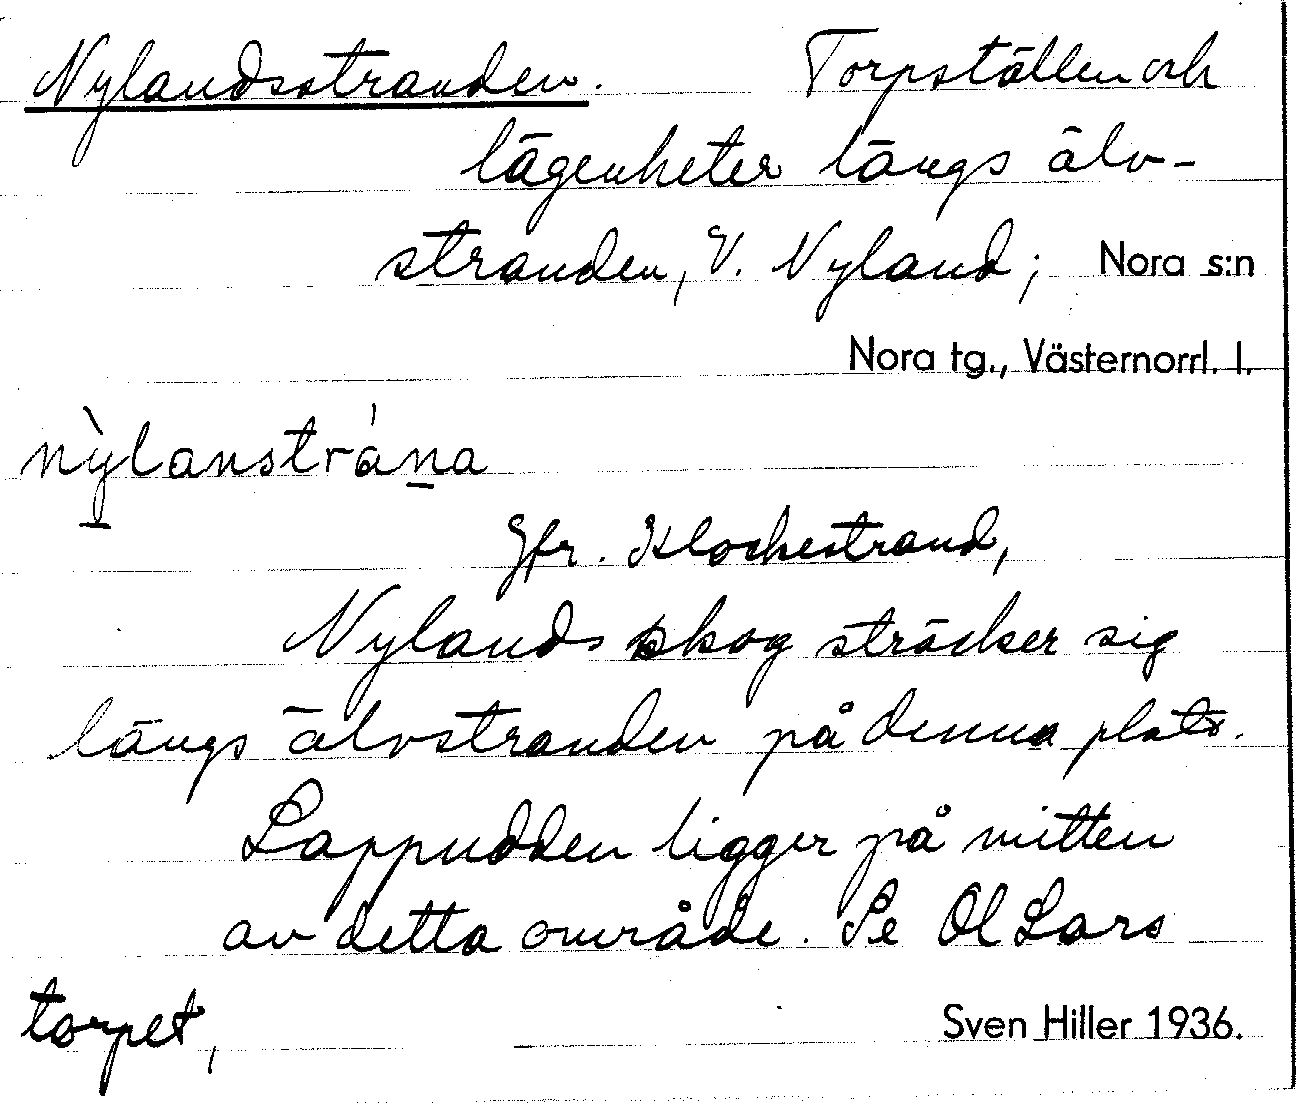 Nylandsstranden. Torpställen och
lägenheter längs älv-
stranden, V. Nyland; Nora s:n
Nora tg., Västernorrl. l.
nỳlanstrána
Jfr. Klockestrand,
Nylands skog sträcker sig
längs älvstranden på denna plats.
Lappudden ligger på mitten
av detta område. Se Ol Lars
torpet,
Sven Hiller 1936.